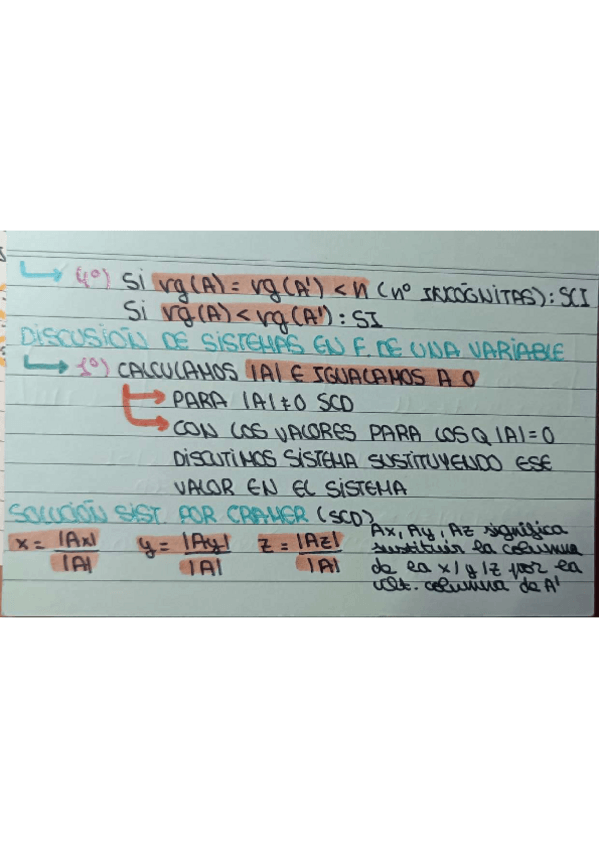 4º) Si rg(A) = rg(A') < n (nº INCÓGNITAS): SCI
Si rg(A) < rg(A'): SI
DISCUSIÓN DE SISTEMAS EN F. DE UNA VARIABLE
1º) CALCULAMOS |A| E IGUALAMOS A 0
PARA |A| ≠ 0 SCD
CON LOS VALORES PARA LOS Q |A| = 0
DISCUTIMOS SISTEMA SUSTITUYENDO ESE
VALOR EN EL SISTEMA
SOLUCIÓN SIST. POR CRAMER (SCD)
x = |Ax| / |A| y = |Ay| / |A| z = |Az| / |A|
Ax, Ay, Az significa
sustituir la columna
de la x/y/z por la
ult. columna de A'